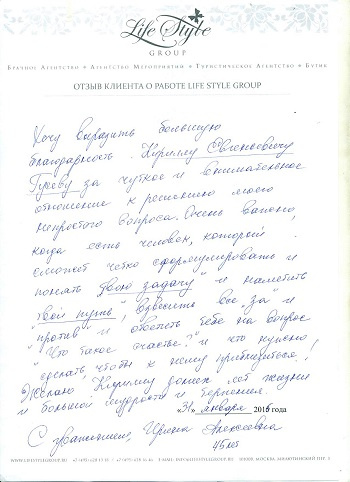 Life Style
GROUP
Брачное Агентство • Агентство Мероприятий • Туристическое Агентство • Бутик
ОТЗЫВ КЛИЕНТА О РАБОТЕ LIFE STYLE GROUP
Хочу выразить большую
благодарность Кириллу Евгеньевичу
Гусеву за чуткое и внимательное
отношение к решению моего
непростого вопроса. Очень важно,
когда есть человек, который
сможет четко сформулировать и
понять твою задачу и наметить
"твой путь", взвесить все "за" и
"против" и ответить себе на вопрос
"Что такое счастье?" и что нужно
сделать чтобы к нему приблизиться!
Желаю Кириллу долгих лет жизни
и большой мудрости и терпения.
«31» января 2016 года
С уважением, Ирина Алексеевна
45 лет